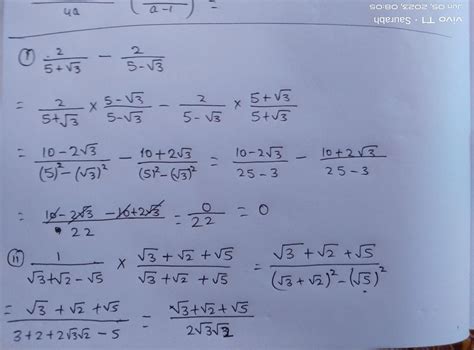 4a (a-1) =
vivo T1 · Saurabh
Jun 05, 2023, 08:05
(i) 2/(5+√3) - 2/(5-√3)
= 2/(5+√3) × (5-√3)/(5-√3) - 2/(5-√3) × (5+√3)/(5+√3)
= (10-2√3)/((5)²-(√3)²) - (10+2√3)/((5)²-(√3)²) = (10-2√3)/(25-3) - (10+2√3)/(25-3)
= (10-2√3-10+2√3)/22 = 0/22 = 0
(ii) 1/(√3+√2-√5) × (√3+√2+√5)/(√3+√2+√5) = (√3+√2+√5)/((√3+√2)²-(√5)²)
= (√3+√2+√5)/(3+2+2√3√2-5) = (√3+√2+√5)/(2√3√2)